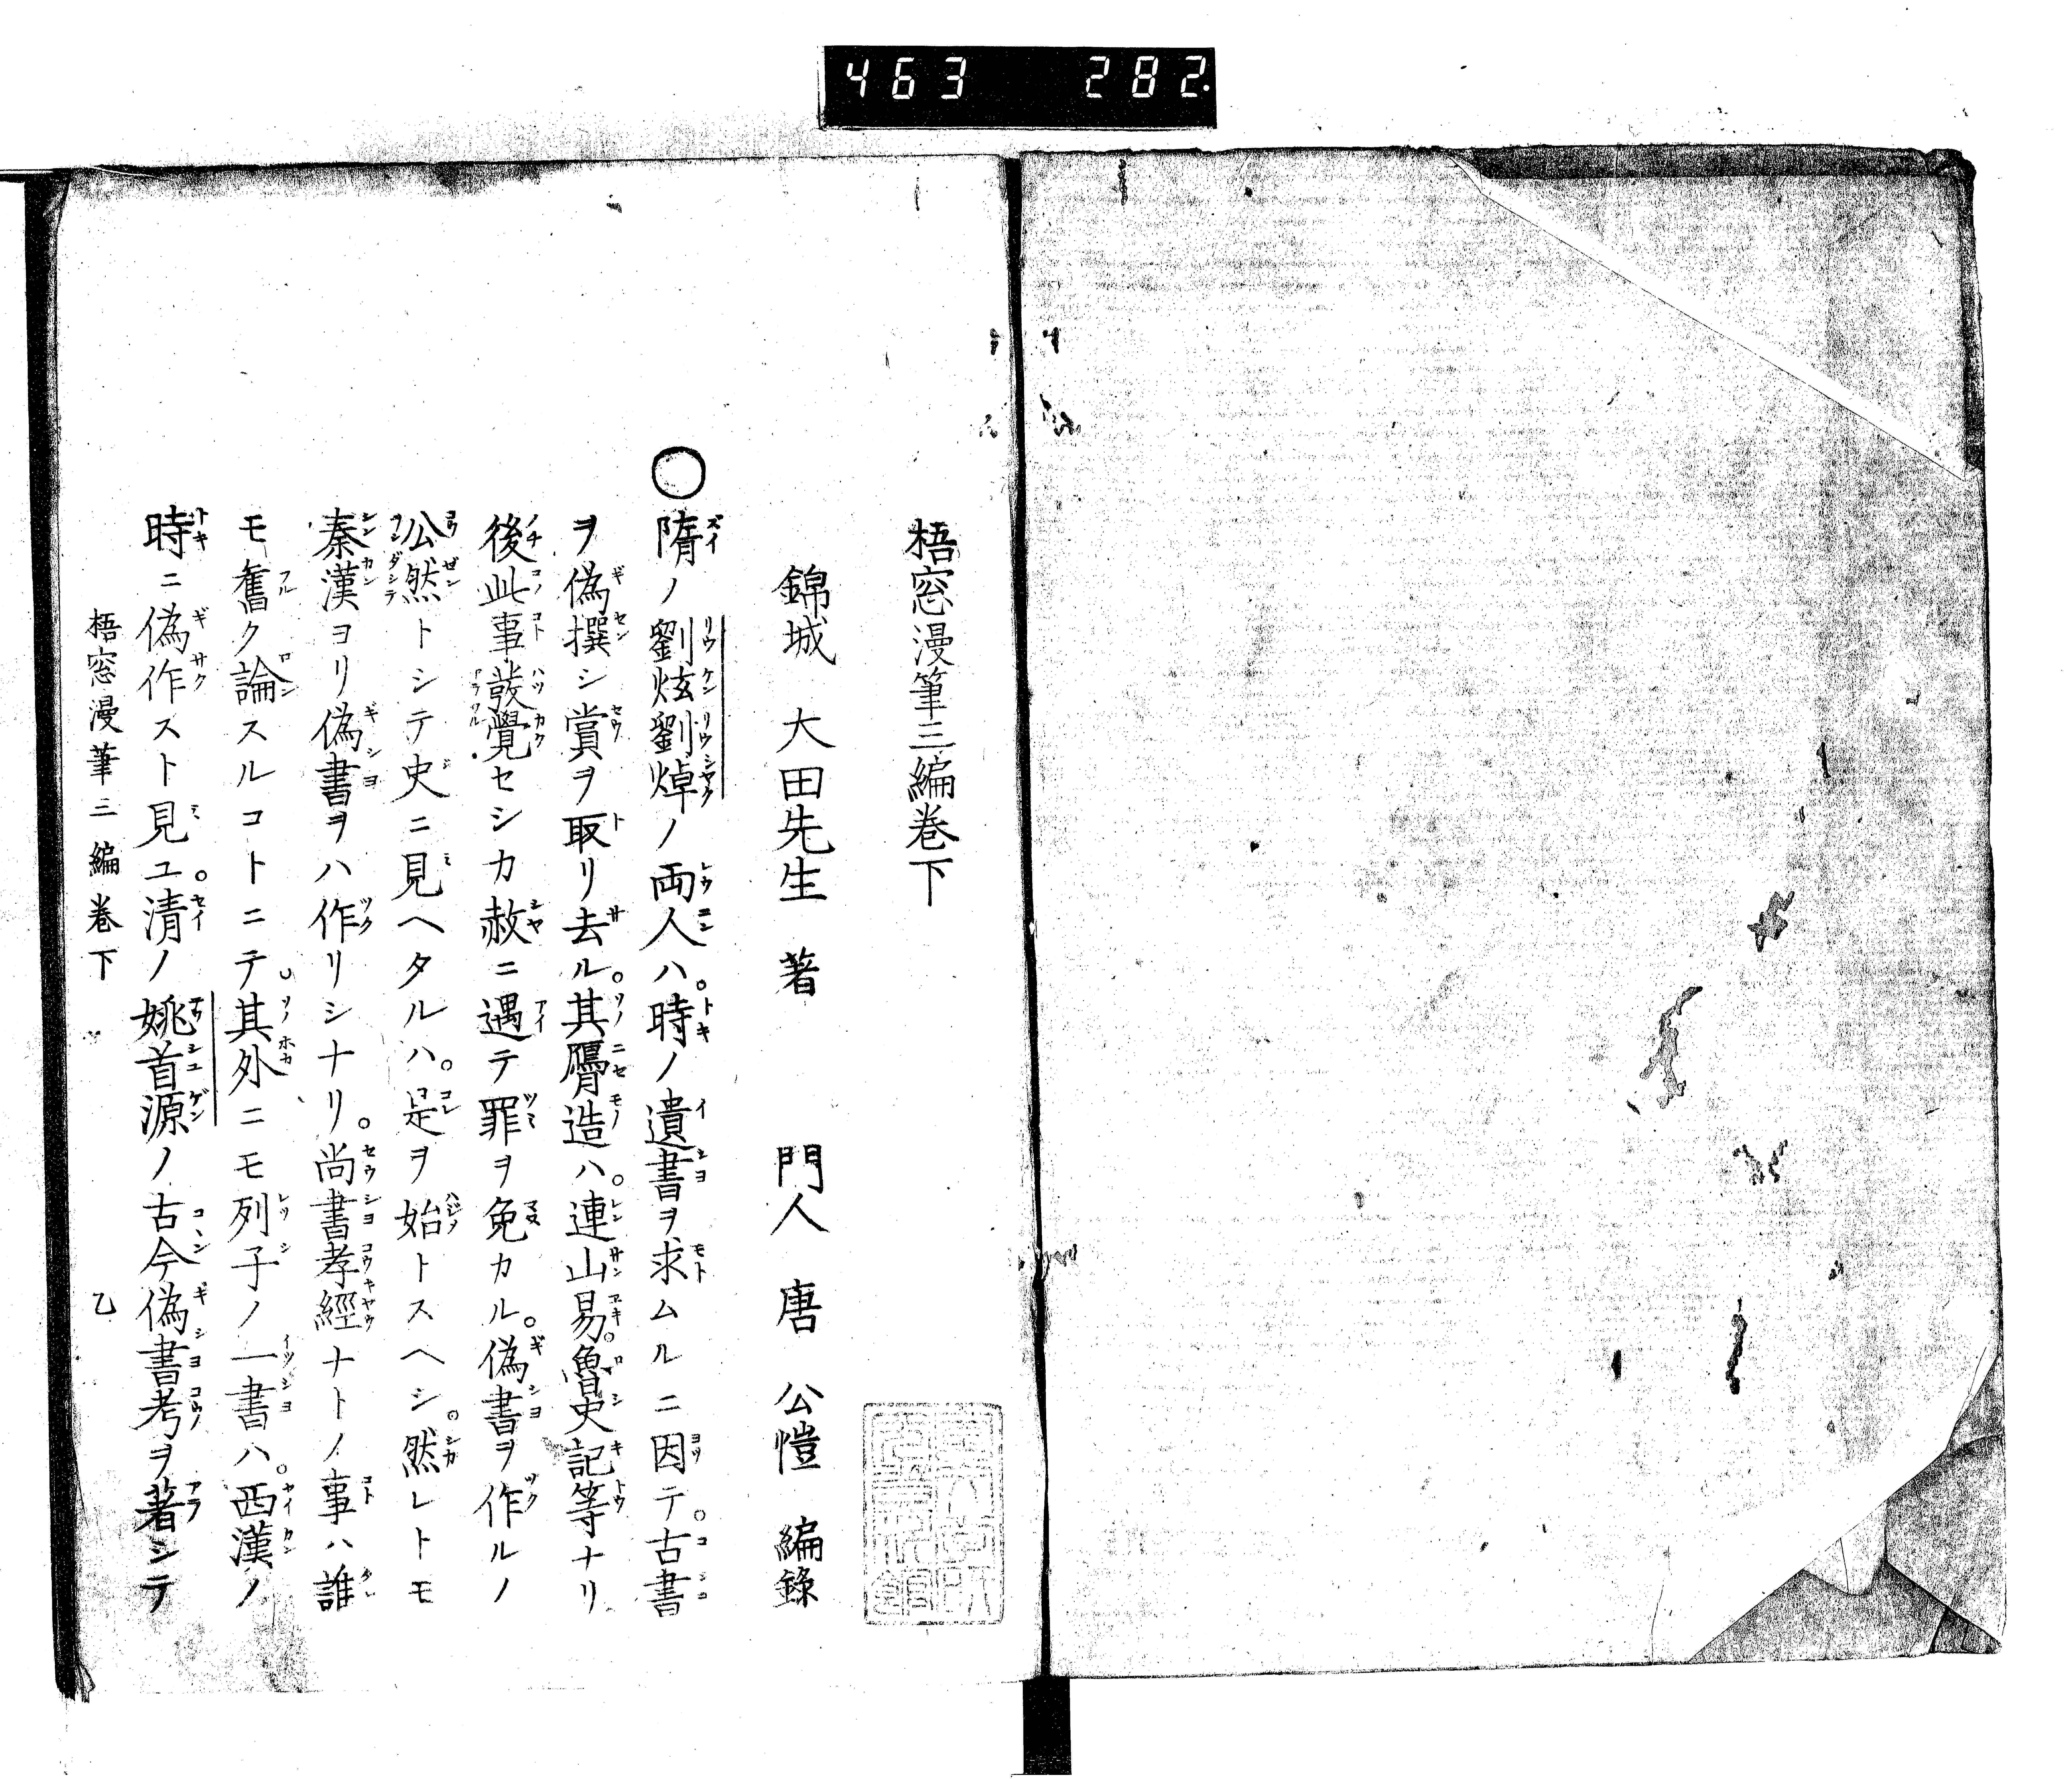 463 282
梧窓漫筆三編巻下
錦城 大田先生 著 門人 唐 公愷 編錄
〇隋ノ劉炫劉焯ノ両人ハ。時ノ遺書ヲ求ムルニ因テ。古書
ヲ偽撰シ賞ヲ取リ去ル。其贋造ハ。連山易。魯史記等ナリ
後此事發覺セシカ赦ニ遇テ罪ヲ免カル。偽書ヲ作ルノ
公然トシテ史ニ見ヘタルハ。是ヲ始トスヘシ。然レトモ
秦漢ヨリ偽書ヲハ作リシナリ。尚書孝經ナトノ事ハ誰
モ奮ク論スルコトニテ。其外ニモ列子ノ一書ハ。西漢ノ
時ニ偽作スト見ユ。清ノ姚首源ノ古今偽書考ヲ著シテ
梧窓漫筆三編巻下 乙